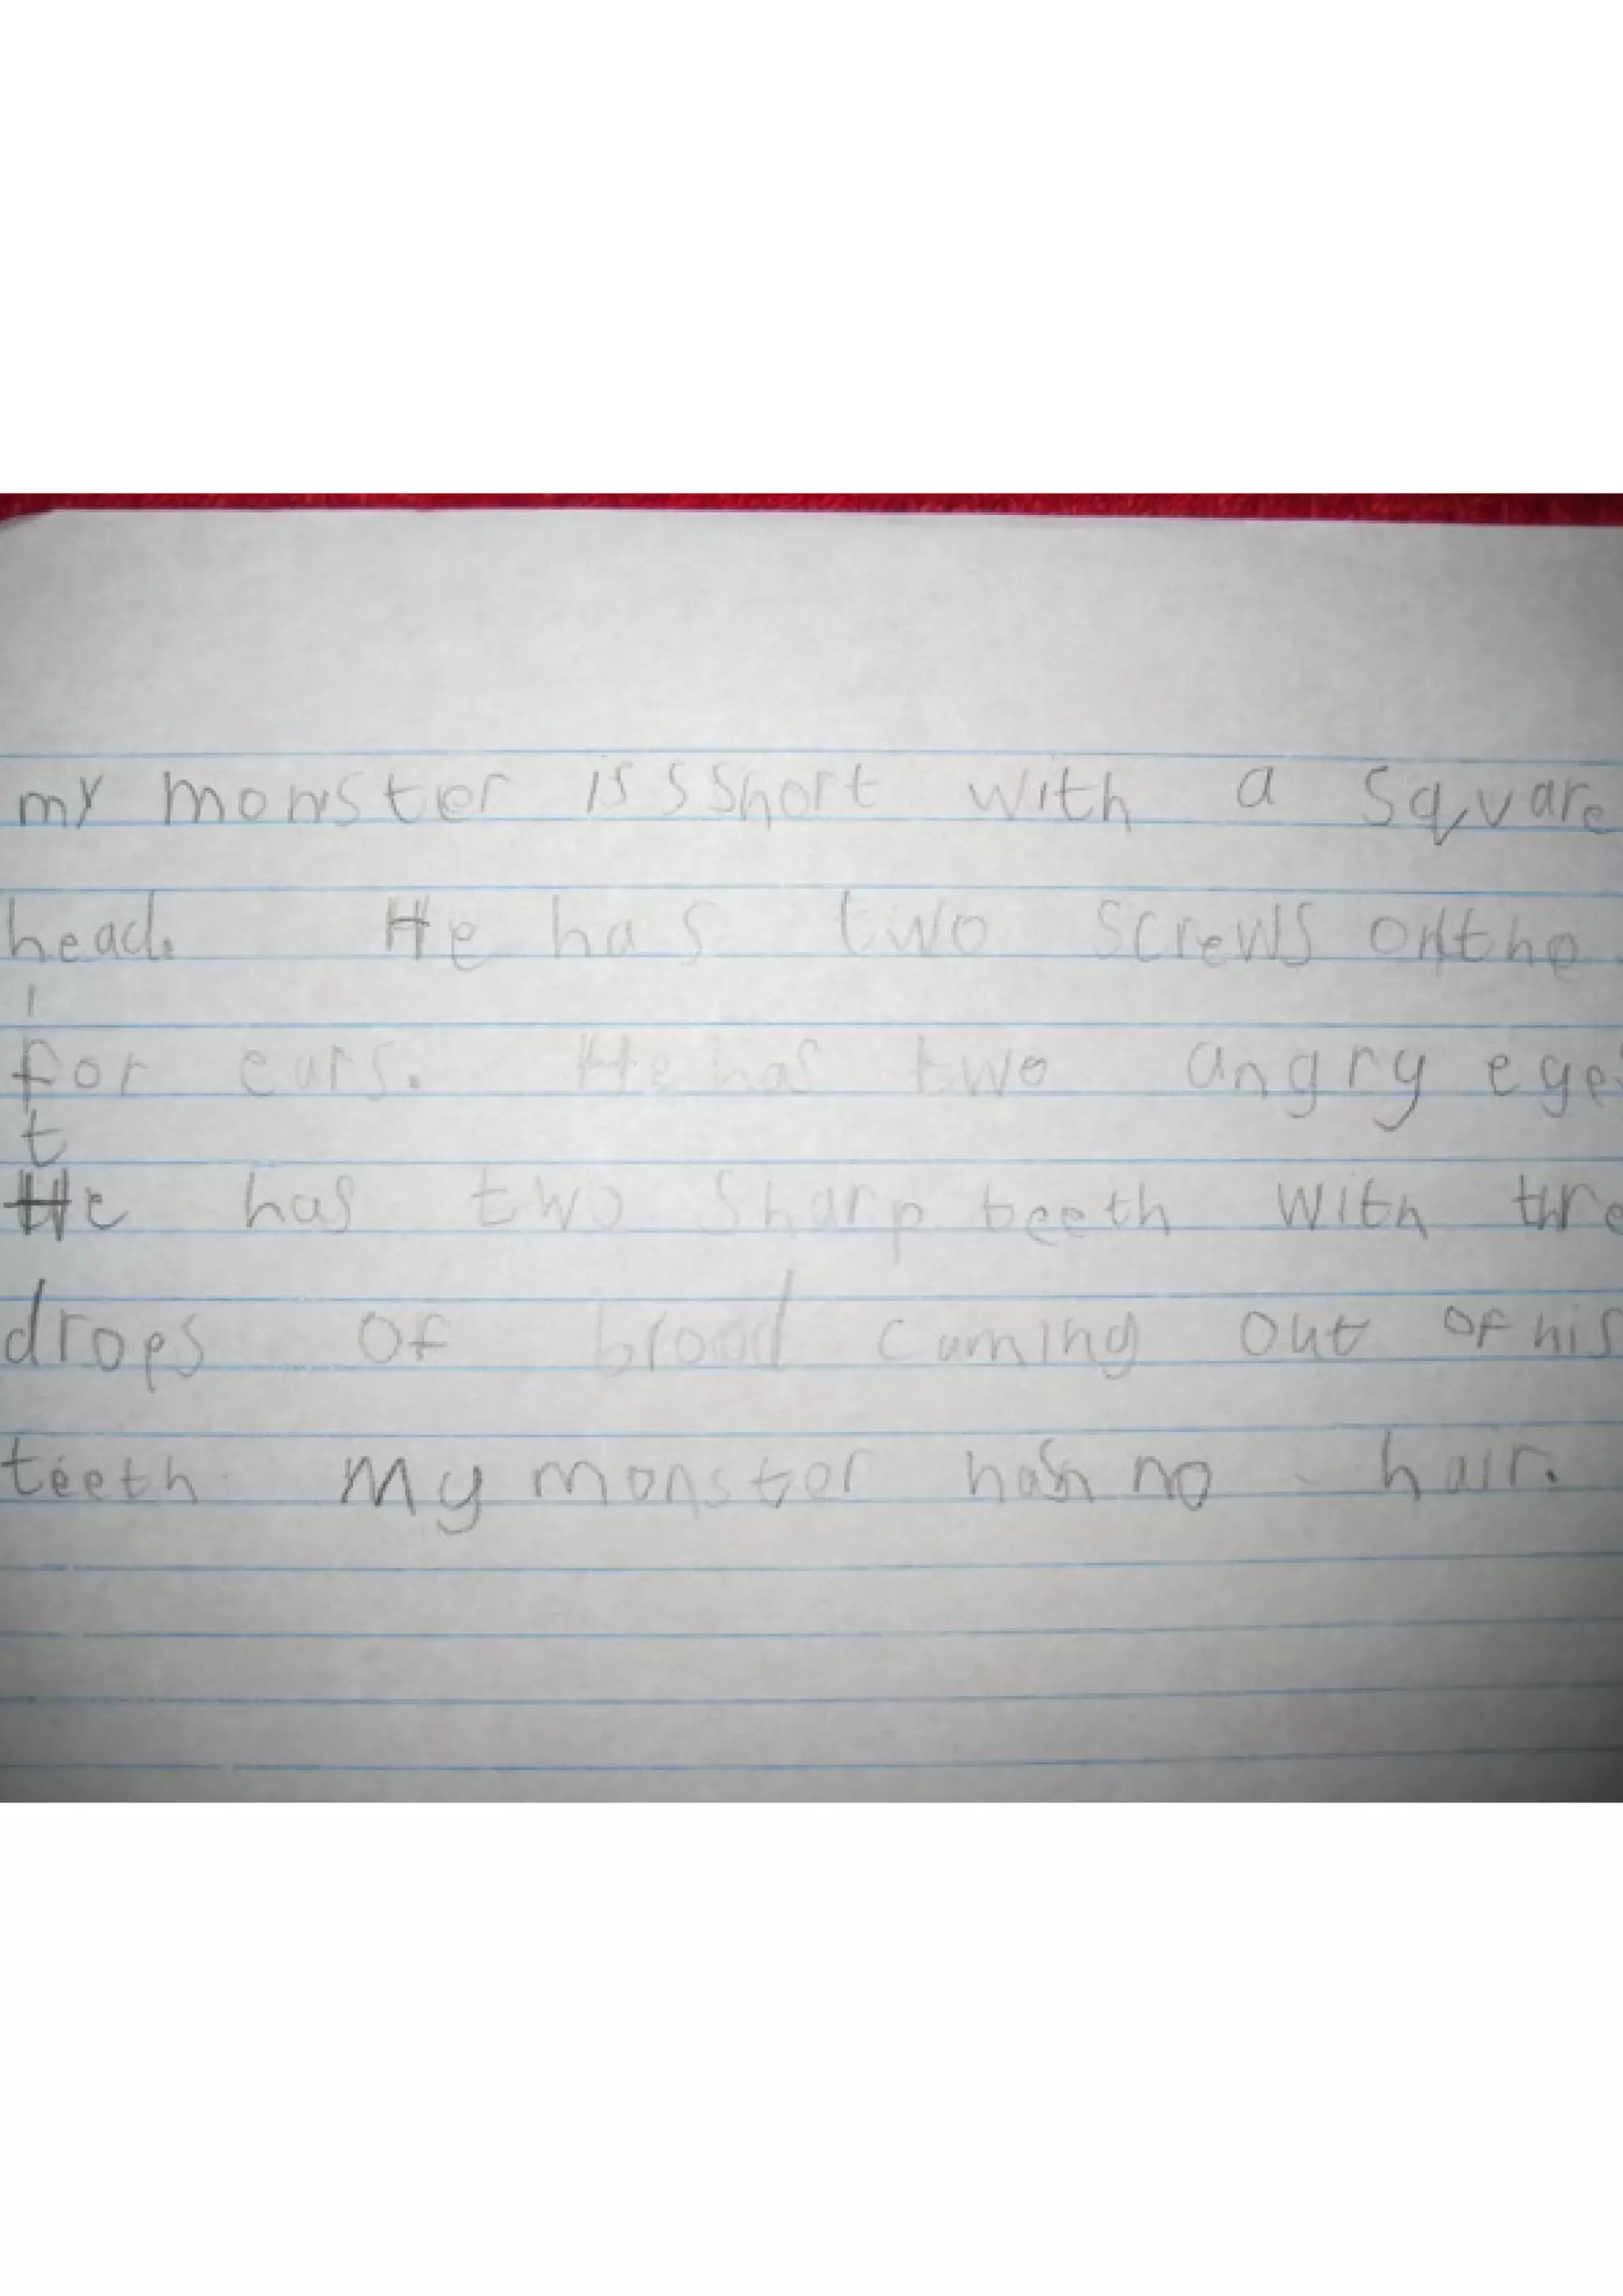 my monster is s short with a square
head. He has two screws on the
for ears. He has two angry eye
t
He has two sharp teeth with thre
drops of brood cuming out of his
teeth. My monster has no hair.